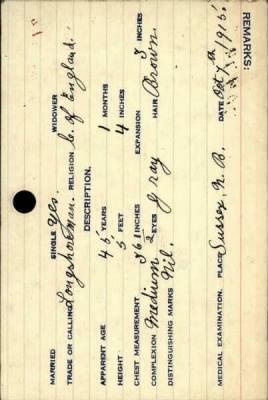 MARRIED SINGLE Yes. WIDOWER
TRADE OR CALLING Longshoreman. RELIGION C. of England.
DESCRIPTION.
APPARENT AGE 45 YEARS 1 MONTHS
HEIGHT 5 FEET 4 INCHES
CHEST MEASUREMENT 36½ INCHES EXPANSION 3 INCHES
COMPLEXION Medium EYES Gray HAIR Brown.
DISTINGUISHING MARKS Nil.
MEDICAL EXAMINATION. PLACE Sussex, N. B. DATE Oct 7th 1916.
REMARKS: